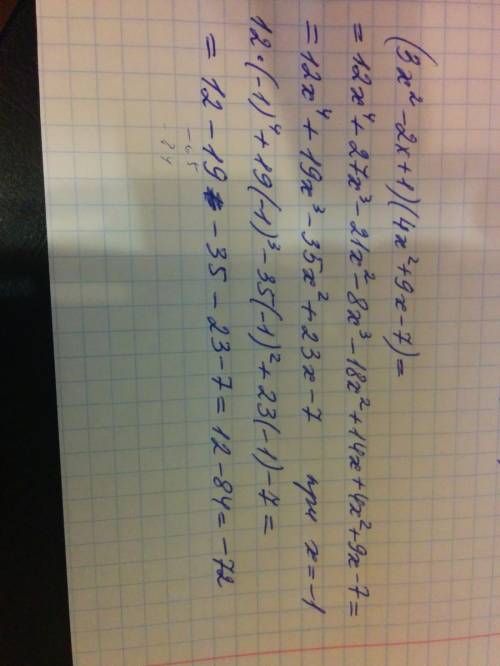 (3x² - 2x + 1)(4x² + 9x - 7) =
= 12x⁴ + 27x³ - 21x² - 8x³ - 18x² + 14x + 4x² + 9x - 7 =
= 12x⁴ + 19x³ - 35x² + 23x - 7 при x = -1
12·(-1)⁴ + 19(-1)³ - 35(-1)² + 23(-1) - 7 =
= 12 - 19 - 35 - 23 - 7 = 12 - 84 = -72